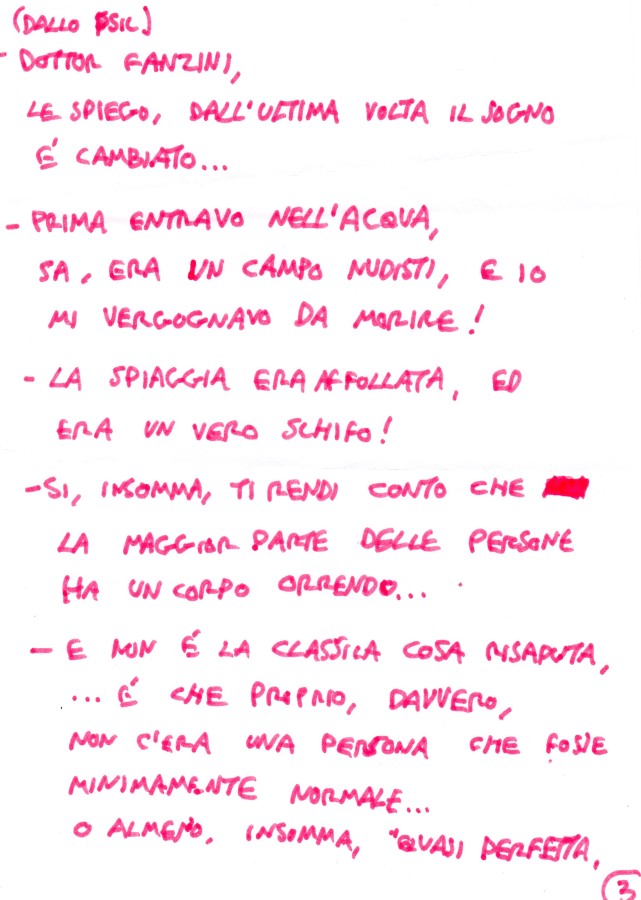 (DALLO PSIC)
- DOTTOR FANZINI,
LE SPIEGO, DALL'ULTIMA VOLTA IL SOGNO
É CAMBIATO...
- PRIMA ENTRAVO NELL'ACQUA,
SA, ERA UN CAMPO NUDISTI, E IO
MI VERGOGNAVO DA MORIRE!
- LA SPIAGGIA ERA AFFOLLATA, ED
ERA UN VERO SCHIFO!
- SI, INSOMMA, TI RENDI CONTO CHE
LA MAGGIOR PARTE DELLE PERSONE
HA UN CORPO ORRENDO...
- E NON É LA CLASSICA COSA RISAPUTA,
... É CHE PROPRIO, DAVVERO,
NON C'ERA UNA PERSONA CHE FOSSE
MINIMAMENTE NORMALE...
O ALMENO, INSOMMA, "QUASI PERFETTA,
3